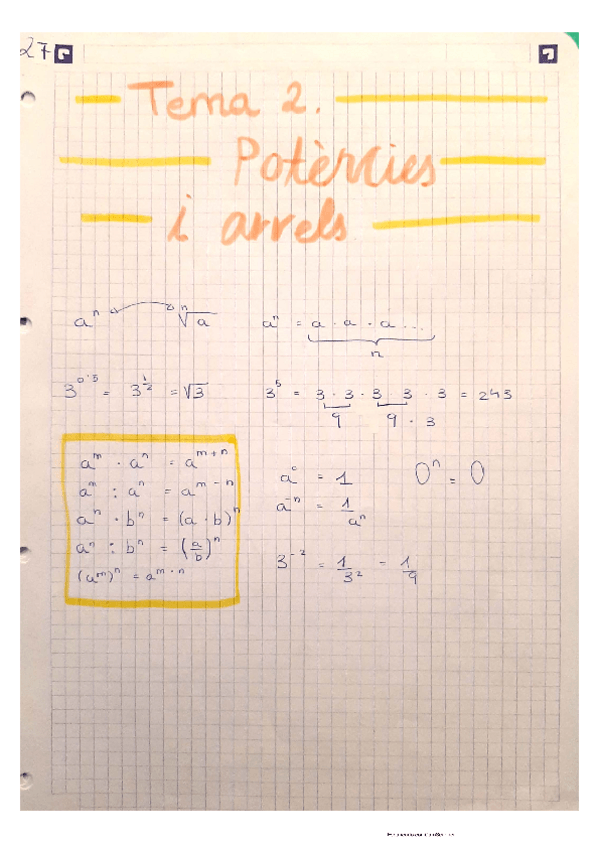 27
Tema 2.
Potències
i arrels
aⁿ ⁿ√a aⁿ = a · a · a ...
n
3^0'5 = 3^½ = √3 3⁵ = 3 · 3 · 3 · 3 · 3 = 243
9 9 · 3
a^m · a^n = a^(m+n)
a^m : a^n = a^(m-n)
aⁿ · bⁿ = (a · b)ⁿ
aⁿ : bⁿ = (a/b)ⁿ
(a^m)^n = a^(m·n)
a⁰ = 1 0ⁿ = 0
a⁻ⁿ = 1/aⁿ
3⁻² = 1/3² = 1/9